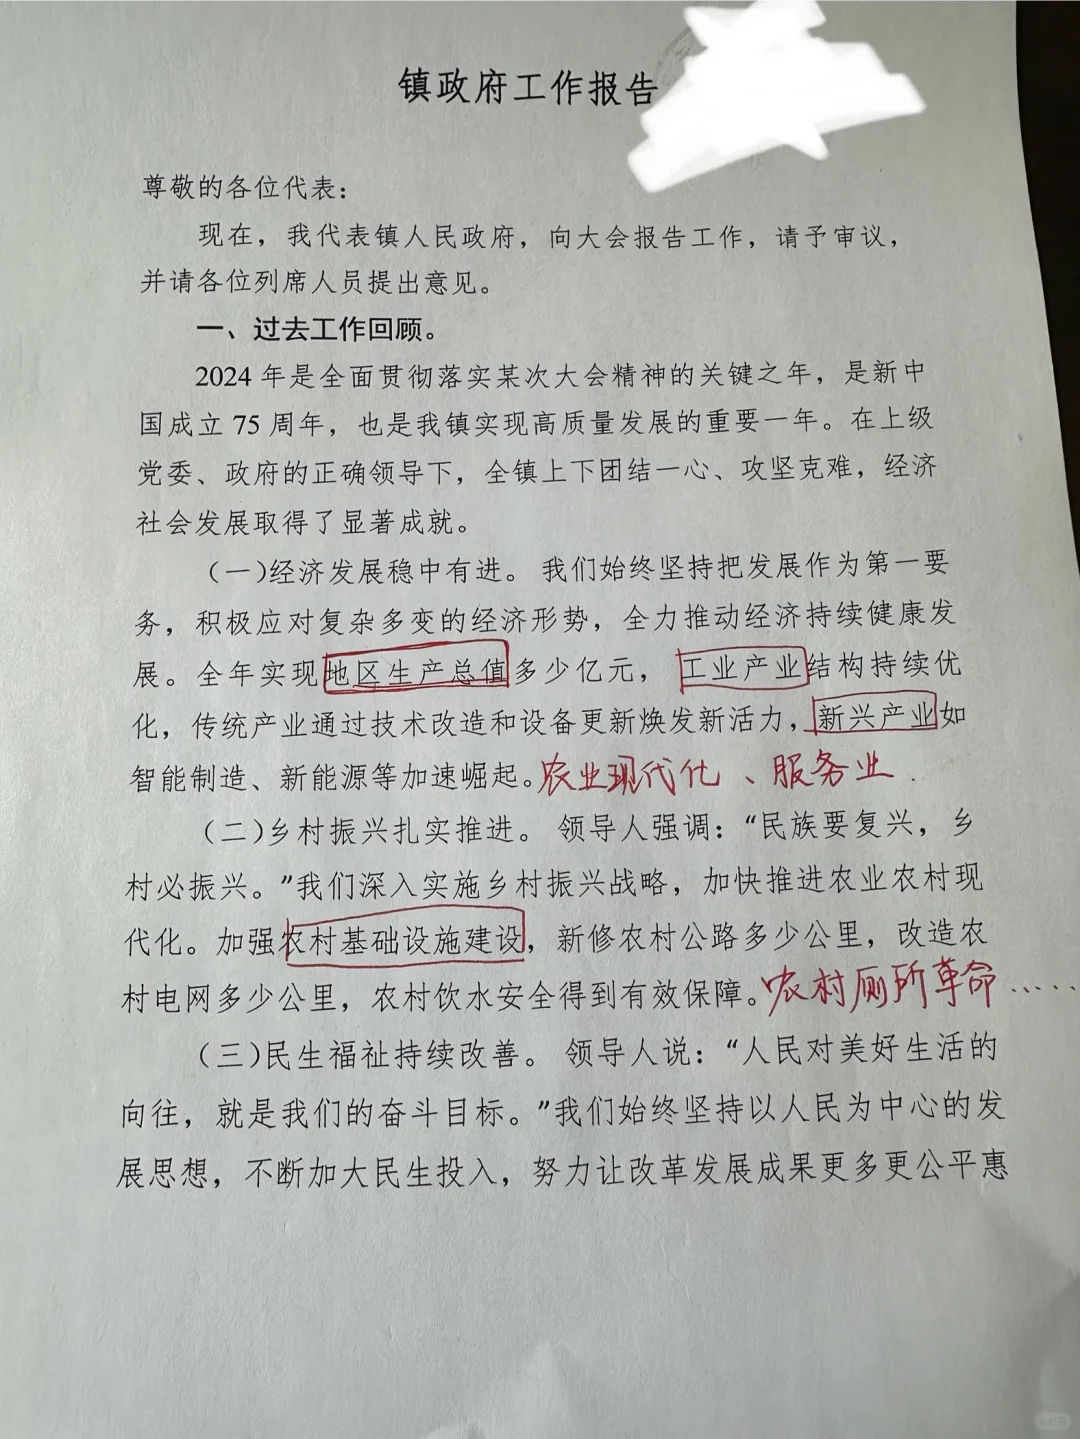 镇政府工作报告
尊敬的各位代表：
现在，我代表镇人民政府，向大会报告工作，请予审议，
并请各位列席人员提出意见。
一、过去工作回顾。
2024 年是全面贯彻落实某次大会精神的关键之年，是新中
国成立 75 周年，也是我镇实现高质量发展的重要一年。在上级
党委、政府的正确领导下，全镇上下团结一心、攻坚克难，经济
社会发展取得了显著成就。
（一）经济发展稳中有进。 我们始终坚持把发展作为第一要
务，积极应对复杂多变的经济形势，全力推动经济持续健康发
展。全年实现地区生产总值多少亿元， 工业产业结构持续优
化，传统产业通过技术改造和设备更新焕发新活力，新兴产业如
智能制造、新能源等加速崛起。农业现代化、服务业.
（二）乡村振兴扎实推进。 领导人强调：“民族要复兴，乡
村必振兴。”我们深入实施乡村振兴战略，加快推进农业农村现
代化。加强农村基础设施建设，新修农村公路多少公里，改造农
村电网多少公里，农村饮水安全得到有效保障。农村厕所革命……
（三）民生福祉持续改善。 领导人说：“人民对美好生活的
向往，就是我们的奋斗目标。”我们始终坚持以人民为中心的发
展思想，不断加大民生投入，努力让改革发展成果更多更公平惠